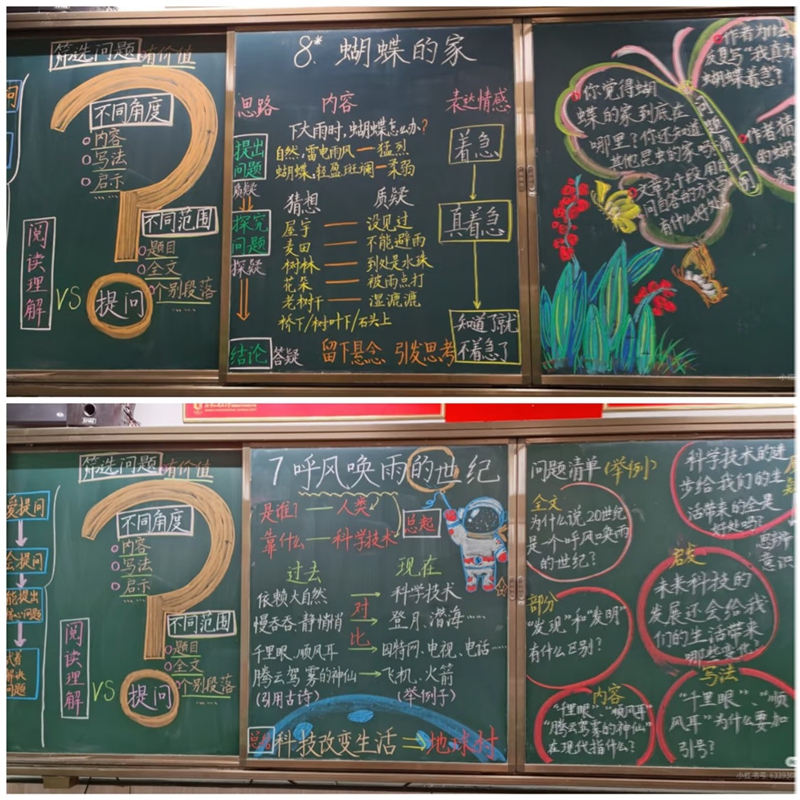 筛选问题 有价值
不同角度
内容
写法
启示
不同范围
题目
全文
个别段落
阅读理解
VS
提问
8* 蝴蝶的家
思路 内容 表达情感
下大雨时,蝴蝶怎么办?
提出问题
自然,雷电雨风——猛烈
蝴蝶,轻盈斑斓——柔弱
着急
质疑
猜想 质疑
探究问题
屋宇——没见过
麦田——不能避雨
真着急
探疑
树林——到处是水珠
花朵——被雨点打
老树干——湿漉漉
桥下/树叶下/石头上
知道了就不着急了
结论 答疑 留下悬念 引发思考
你觉得蝴
蝶的家到底在
哪里?你还知道
其他昆虫的家吗
文章3个段用自
问自答的方式
有什么好处
作者为什么
反复写“我真为
蝴蝶着急?
作者猜
的蝴
家
筛选问题 有价值
不同角度
内容
写法
启示
不同范围
题目
全文
个别段落
阅读理解
VS
提问
爱提问
会提问
能提出
核心问题
解决
问题
7 呼风唤雨的世纪
是谁?——人类
靠什么——科学技术
总起
过去 现在
依赖大自然 → 科学技术
慢吞吞、静悄悄 → 登月、潜海……
对比
千里眼、顺风耳 → 因特网、电视、电话……
腾云驾雾的神仙 → 飞机、火箭
(引用古诗) (举例子)
总 科技改变生活 ⇒ 地球村
问题清单(举例)
全文
为什么说20世纪
是一个呼风唤雨
的世纪?
部分
“发现”和“发明”
有什么区别?
内容
“千里眼”、“顺风耳”
“腾云驾雾的神仙”
在现代指什么?
科学技术的进
步给我们的生
活带来的全是
好处吗?
思辨
意识
启发
未来科技的
发展还会给我
们的生活带来
哪些变化?
写法
“千里眼”、“顺
风耳”为什么要加
引号?
小红书号